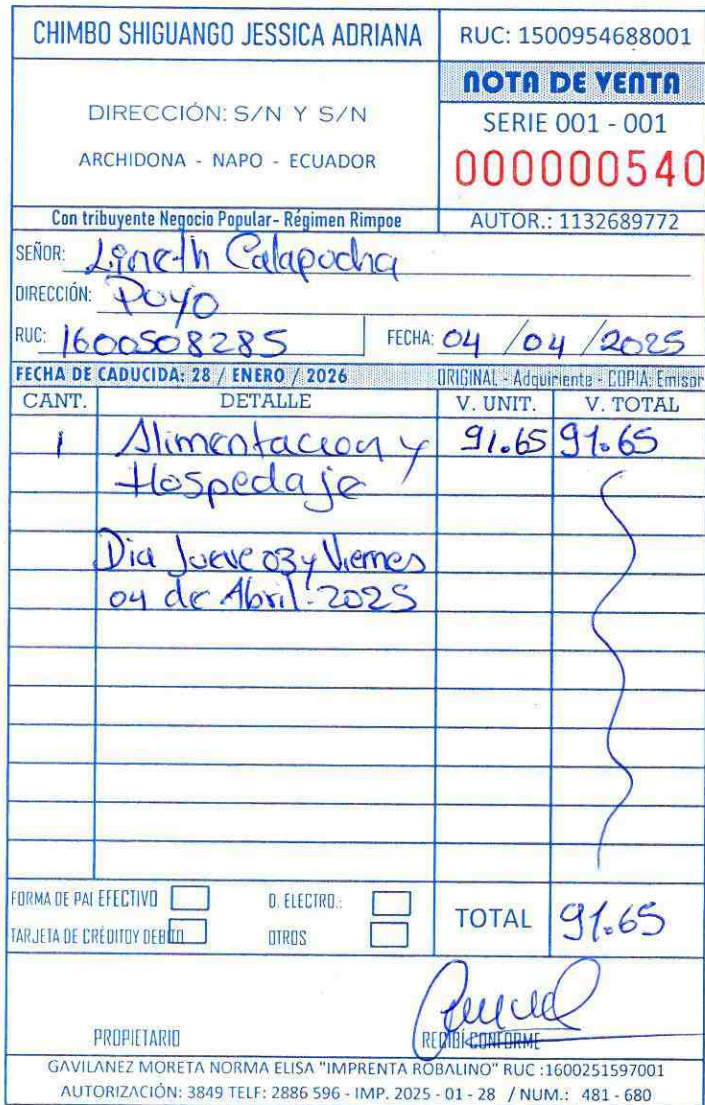 CHIMBO SHIGUANGO JESSICA ADRIANA
RUC: 1500954688001
DIRECCIÓN: S/N Y S/N
ARCHIDONA - NAPO - ECUADOR
NOTA DE VENTA
SERIE 001 - 001
000000540
Con tribuyente Negocio Popular- Régimen Rimpoe
AUTOR.: 1132689772
SEÑOR: Lineth Calapucha
DIRECCIÓN: Puyo
RUC: 1600508285
FECHA: 04 /04 /2025
FECHA DE CADUCIDA: 28 / ENERO / 2026
ORIGINAL - Adquiriente - COPIA: Emisor
CANT. DETALLE V. UNIT. V. TOTAL
1 Alimentacion y 91.65 91.65
Hospedaje
Dia Jueve 03 y Viernes
04 de Abril. 2025
FORMA DE PAI EFECTIVO D. ELECTRO.:
TARJETA DE CRÉDITOY DEBITO OTROS
TOTAL 91.65
PROPIETARIO RECIBÍ CONFORME
GAVILANEZ MORETA NORMA ELISA "IMPRENTA ROBALINO" RUC :1600251597001
AUTORIZACIÓN: 3849 TELF: 2886 596 - IMP. 2025 - 01 - 28 / NUM.: 481 - 680